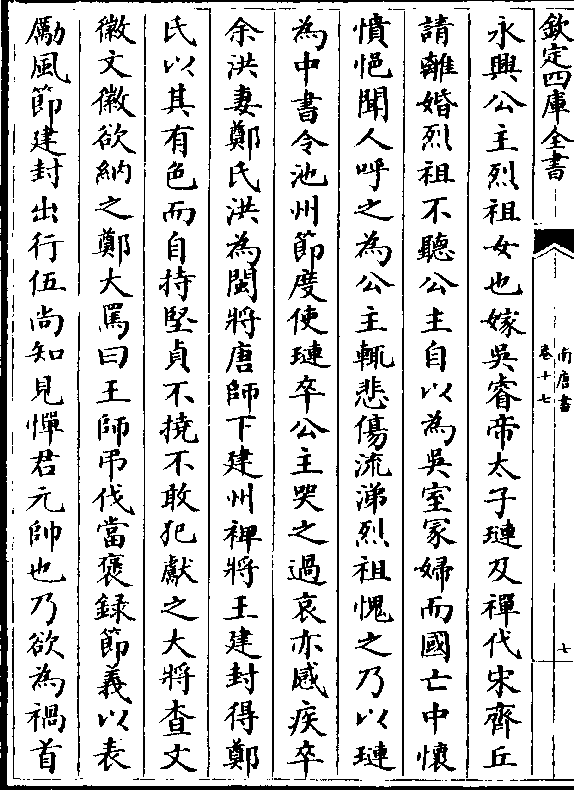 欽定四庫全書
南唐書
卷十七
七
永興公主烈祖女也嫁吳睿帝太子璉及禪代宋齊丘
請離婚烈祖不聽公主自以為吳室冢婦而國亡中懷
憤悒聞人呼之為公主輒悲傷流涕烈祖愧之乃以璉
為中書令池州節度使璉卒公主哭之過哀亦感疾卒
余洪妻鄭氏洪為閩將唐師下建州裨將王建封得鄭
氏以其有色而自持堅貞不撓不敢犯獻之大將查文
徽文徽欲納之鄭大罵曰王師弔伐當褒録節義以表
勵風節建封出行伍尚知見憚君元帥也乃欲為禍首